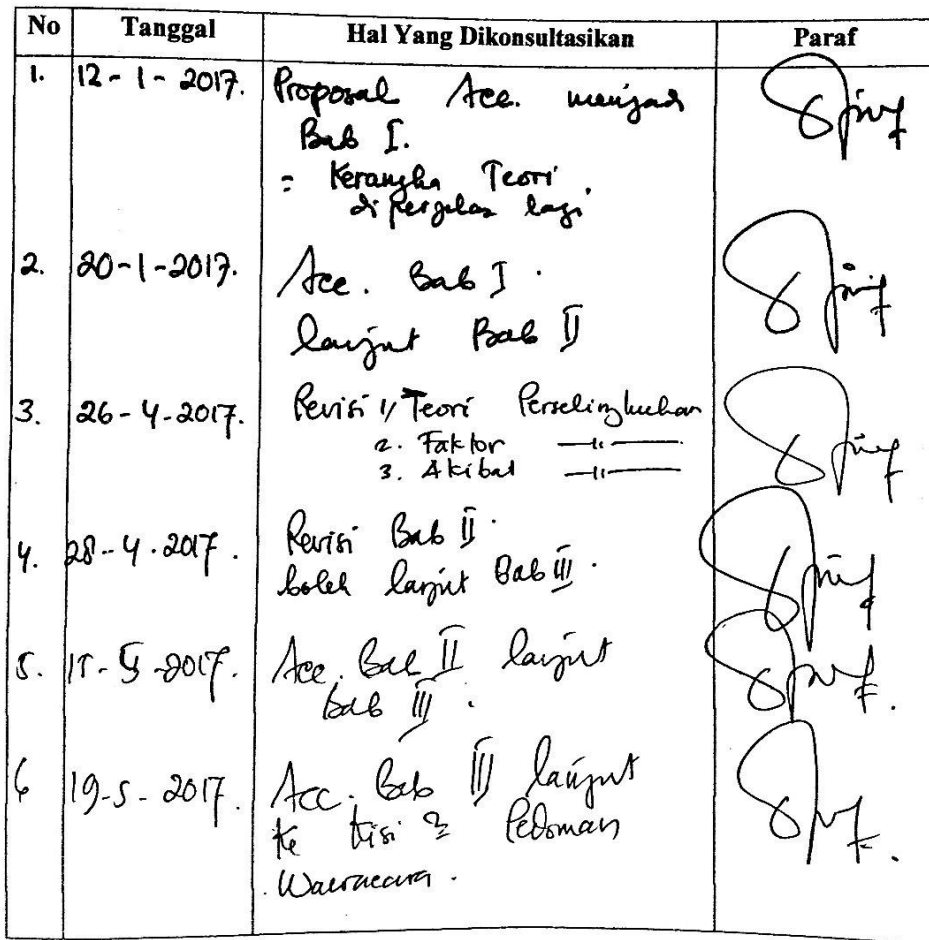 No Tanggal Hal Yang Dikonsultasikan Paraf
1. 12-1-2017. Proposal Acc. menjadi
Bab I.
= Kerangka Teori
diperjelas lagi
2. 20-1-2017. Acc. Bab I.
lanjut Bab II
3. 26-4-2017. Revisi 1/ Teori Perselingkuhan
2. Faktor —"—
3. Akibat —"—
4. 28-4-2017. Revisi Bab II.
boleh lanjut Bab III.
5. 15-5-2017. Acc. Bab II lanjut
Bab III.
6 19-5-2017. Acc. Bab III lanjut
ke kisi2 Pedoman
Wawancara.